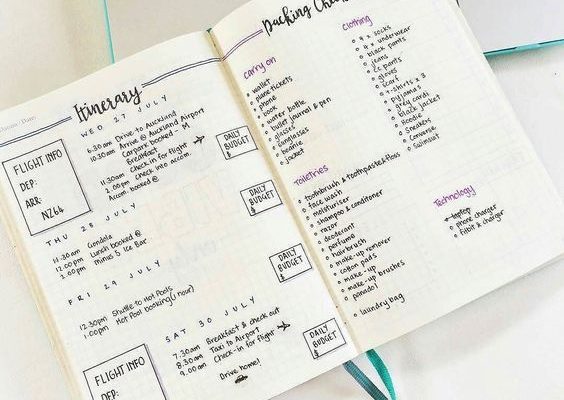 Itinerary
WED 27 JULY
6.30am Drive to Auckland
10.30am Arrive @ Auckland Airport
Carpark booked - M
Breakfast
11.30am Check in for flight
1.00pm check into accom.
Accom. booked @
DAILY BUDGET
$
FLIGHT INFO
DEP:
ARR:
NZ64
THU 28 JULY
11.30am Gondola
12.00pm Lunch booked @
2.00pm Minus 5 Ice Bar
DAILY BUDGET
$
FRI 29 JULY
12.30pm Shuttle to Hot Pools
1.00pm Hot Pool booking (1 hour)
DAILY BUDGET
$
SAT 30 JULY
7.30am Breakfast & check out
8.30am Taxi to Airport
9.00am Check-in for flight
Drive home!
DAILY BUDGET
$
FLIGHT INFO
DEP:
Packing
Carry on
wallet
plane tickets
phone
book
water bottle
bullet journal & pen
glasses
sunglasses
beanie
jacket
Toiletries
toothbrush & toothpaste & floss
face wash
moisturiser
shampoo & conditioner
razor
deodorant
perfume
hairbrush
make-up remover
cotton pads
make-up
make-up brushes
panadol
laundry bag
Clothing
9 x socks
4 x underwear
black pants
jeans
cc pants
gloves
scarf
t-shirts x 3
pyjamas
grey cardi
black jacket
Hoodie
sneakers
Converse
swimsuit
Technology
laptop
phone charger
fitbit & charger